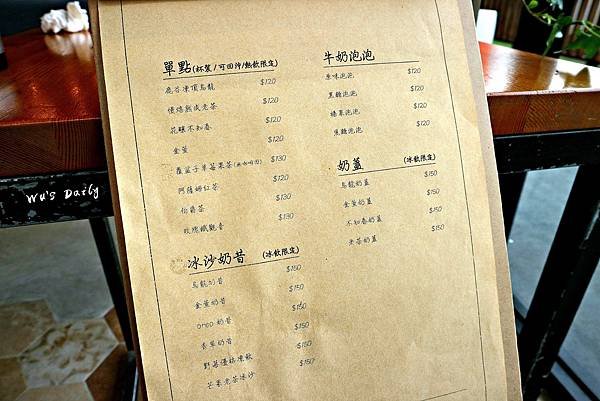 單點(杯裝/可回沖/熱飲限定)
鹿谷凍頂烏龍 $120
慢焙熟成老茶 $120
花釀不知春 $120
金萱 $120
覆盆子草莓果茶(無咖啡因) $130
阿薩姆紅茶 $120
伯爵茶 $130
玫瑰鐵觀音 $130
冰沙奶昔 (冰飲限定)
烏龍奶昔 $150
金萱奶昔 $150
oreo奶昔 $150
香草奶昔 $150
野莓優格凍飲 $150
芒果老茶冰沙 $150
牛奶泡泡
原味泡泡 $120
黑糖泡泡 $120
榛果泡泡 $120
焦糖泡泡 $120
奶蓋 (冰飲限定)
烏龍奶蓋 $150
金萱奶蓋 $150
不知春奶蓋 $150
老茶奶蓋 $150
Wu's Daily